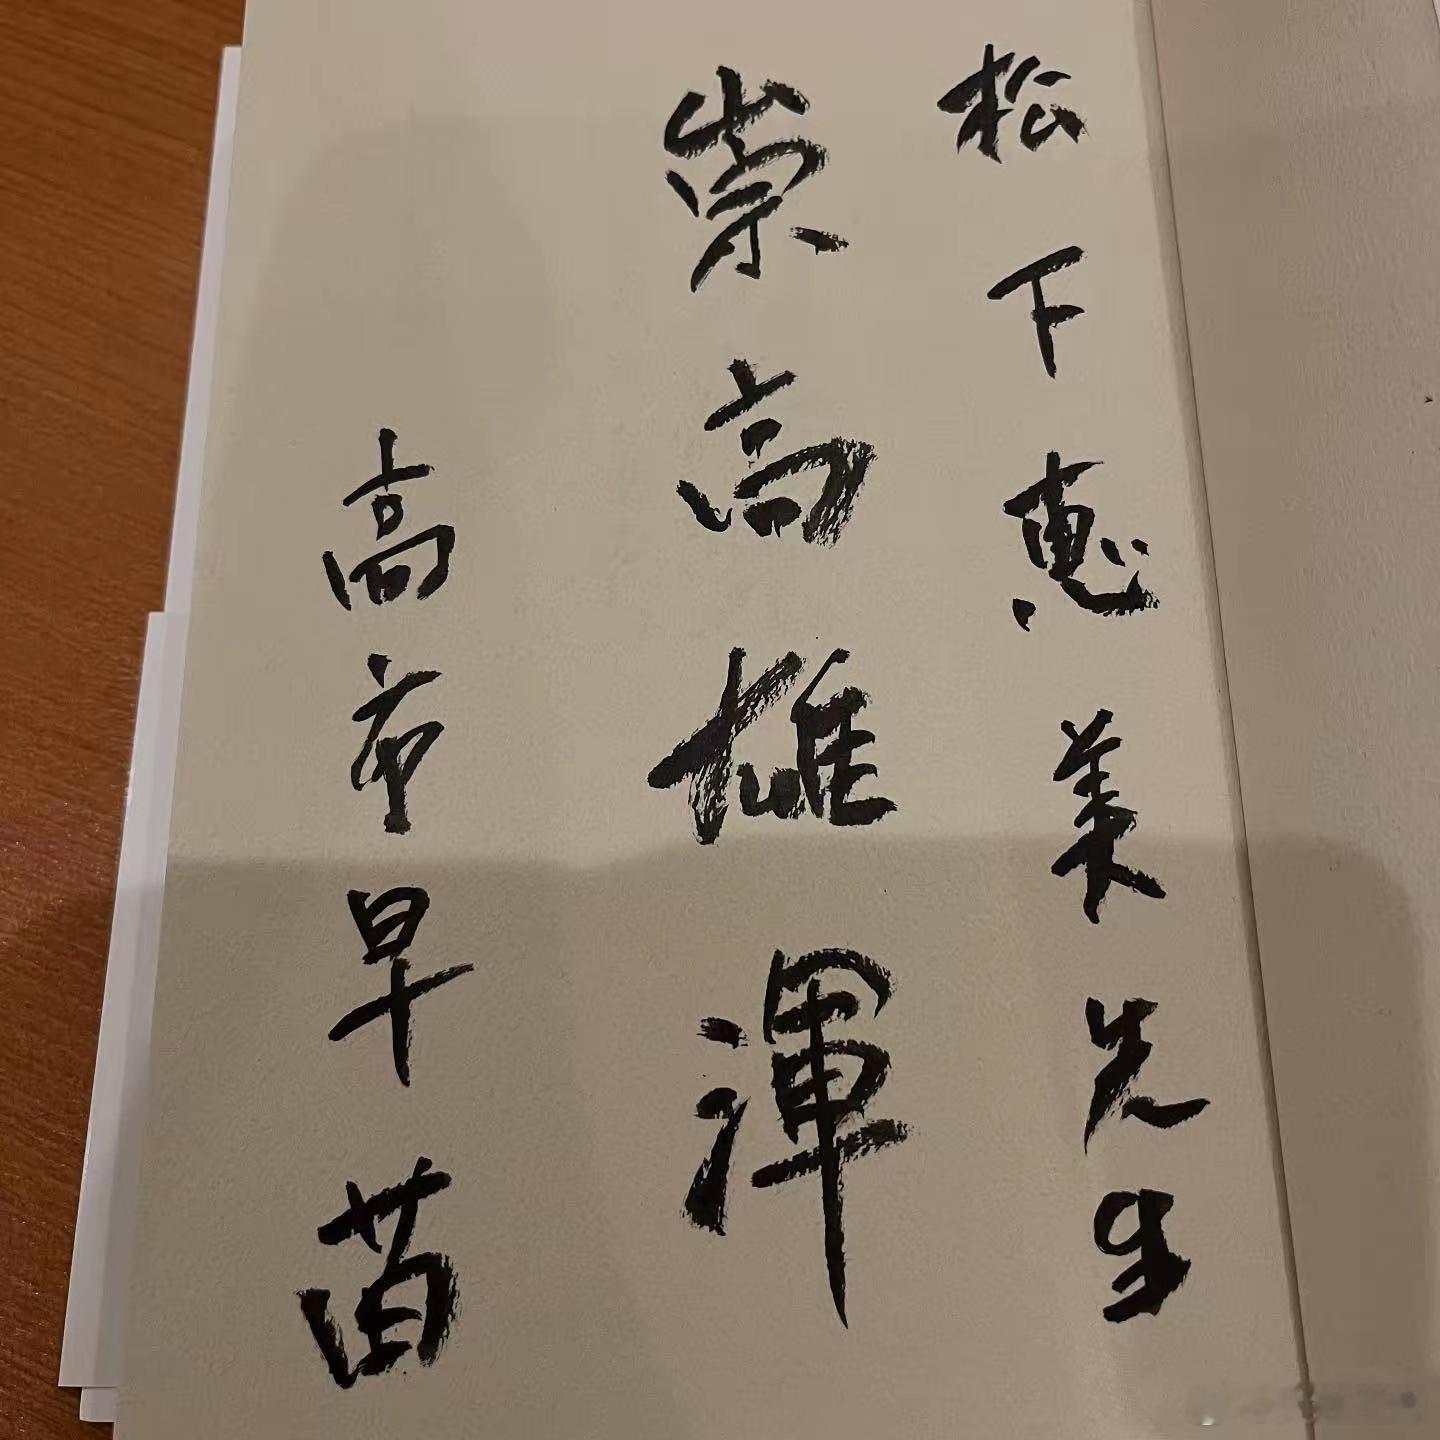 松下惠美先生
崇高雄渾
高市早苗